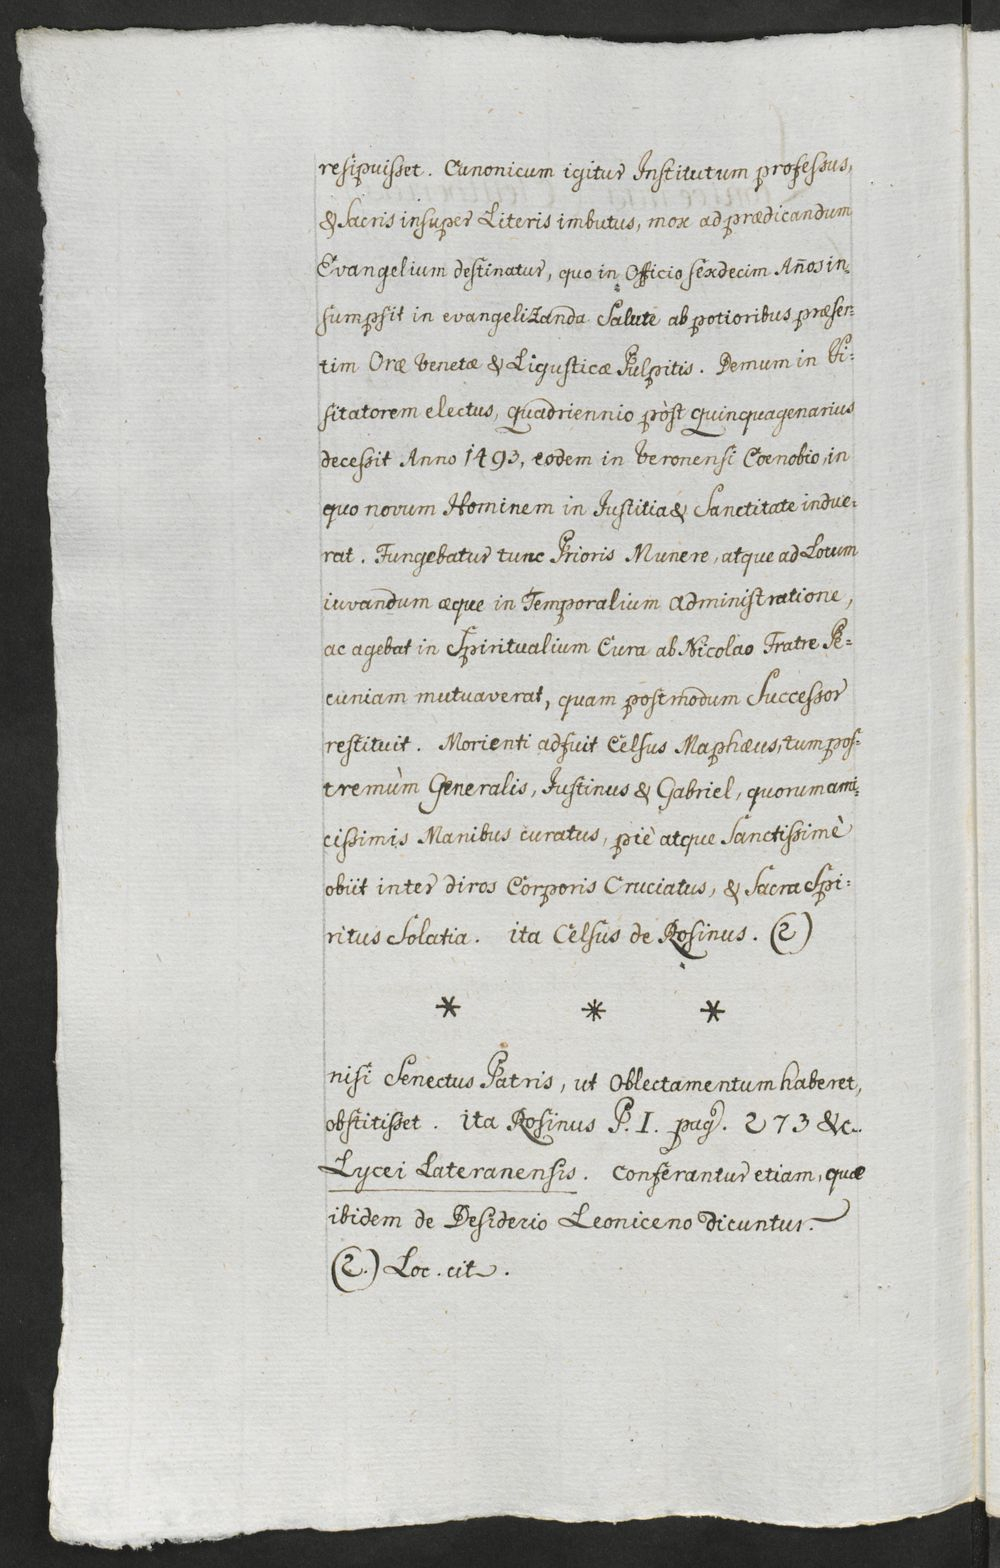 resipuisset. Canonicum igitur Institutum professus,
& Sacris insuper Literis imbutus, mox ad prædicandum
Evangelium destinatur, quo in Officio sexdecim Años in-
sumpsit in evangelizanda Salute ab potioribus præser-
tim Oræ Venetæ & Ligusticæ Pulpitis. Demum in Vi-
sitatorem electus, quadriennio pòst quinquagenarius
decessit Anno 1493, eodem in Veronensi Coenobio, in
quo novum Hominem in Justitia & Sanctitate indue-
rat. Fungebatur tunc Prioris Munere, atque ad Locum
iuvandum æque in Temporalium administratione,
ac agebat in Spiritualium Cura ab Nicolao Fratre Pe-
cuniam mutuaverat, quam postmodum Successor
restituit. Morienti adfuit Celsus Maphæus, tum pos-
tremùm Generalis, Justinus & Gabriel, quorum ami-
cissimis Manibus curatus, piè atque Sanctissimè
obiit inter diros Corporis Cruciatus, & Sacra Spi-
ritus Solatia. ita Celsus de Rosinus. (2)
* * *
nisi Senectus Patris, ut Oblectamentum haberet,
obstitisset. ita Rosinus P. I. pag. 273 &c.
Lycei Lateranensis. Conferantur etiam, quæ
ibidem de Desiderio Leoniceno dicuntur.
(2.) Loc. cit.